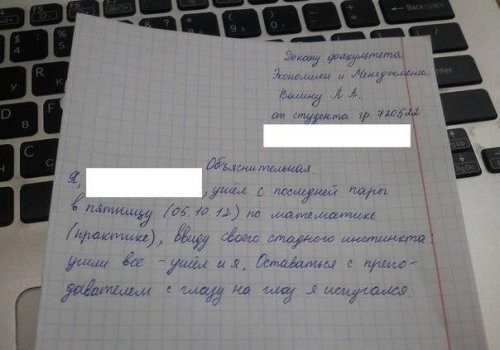 Декану факультета
Экономики и Менеджмента
Вашину Л.А.
от студента гр. 720522
Объяснительная.
Я, , ушёл с последней пары
в пятницу (05.10.12) по математике
(практике), ввиду своего стадного инстинкта:
ушли все - ушёл и я. Оставаться с препо-
давателем с глазу на глаз я испугался.